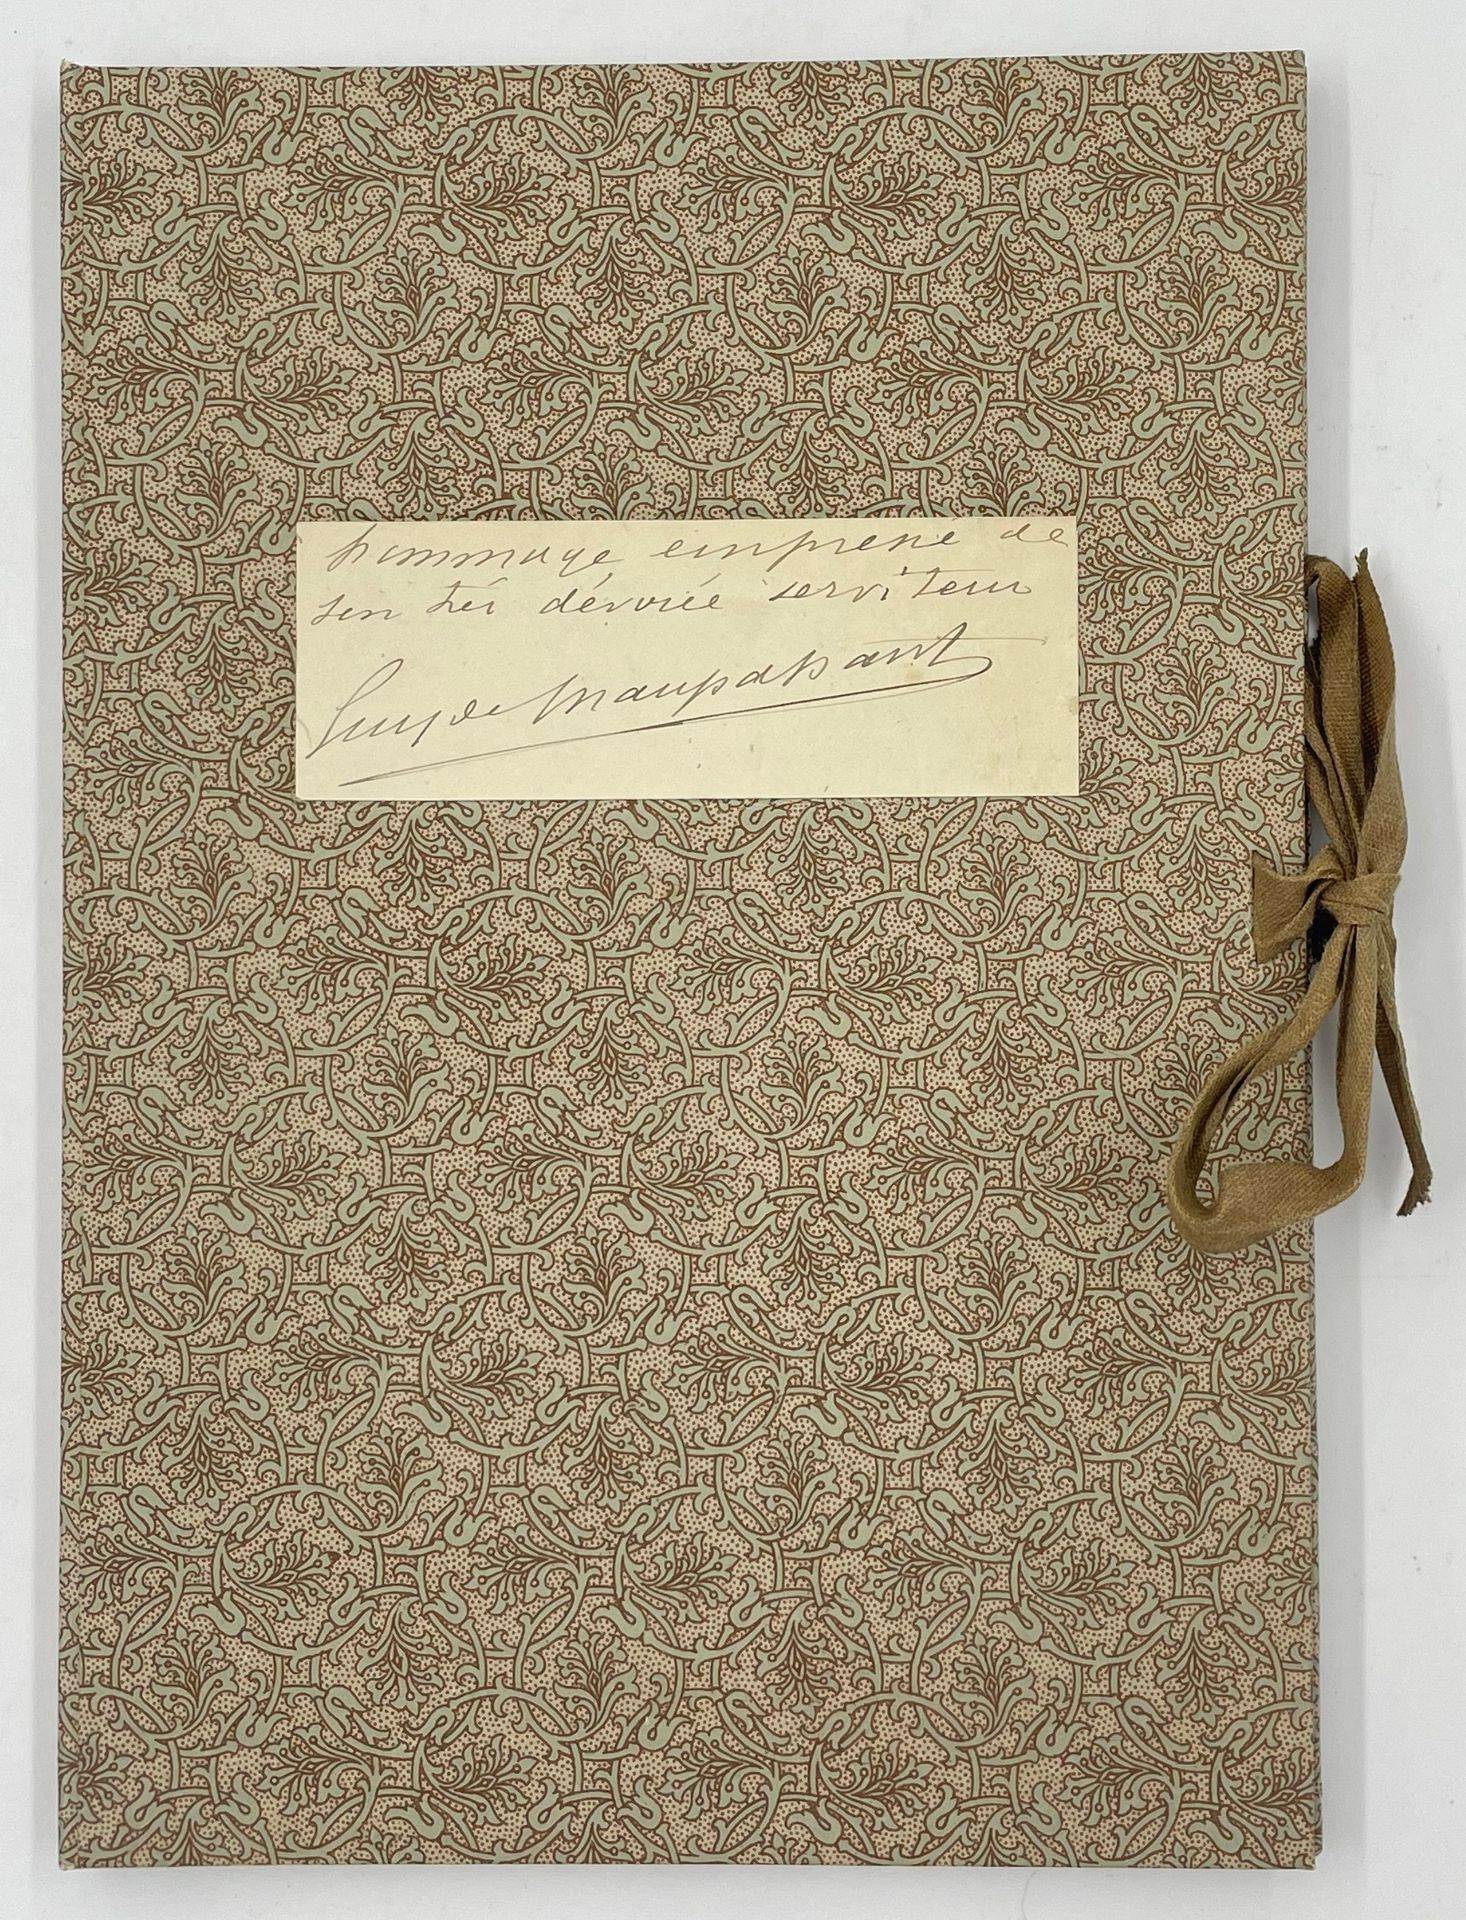 hommage empressé de
son très dévoué serviteur
Guy de Maupassant